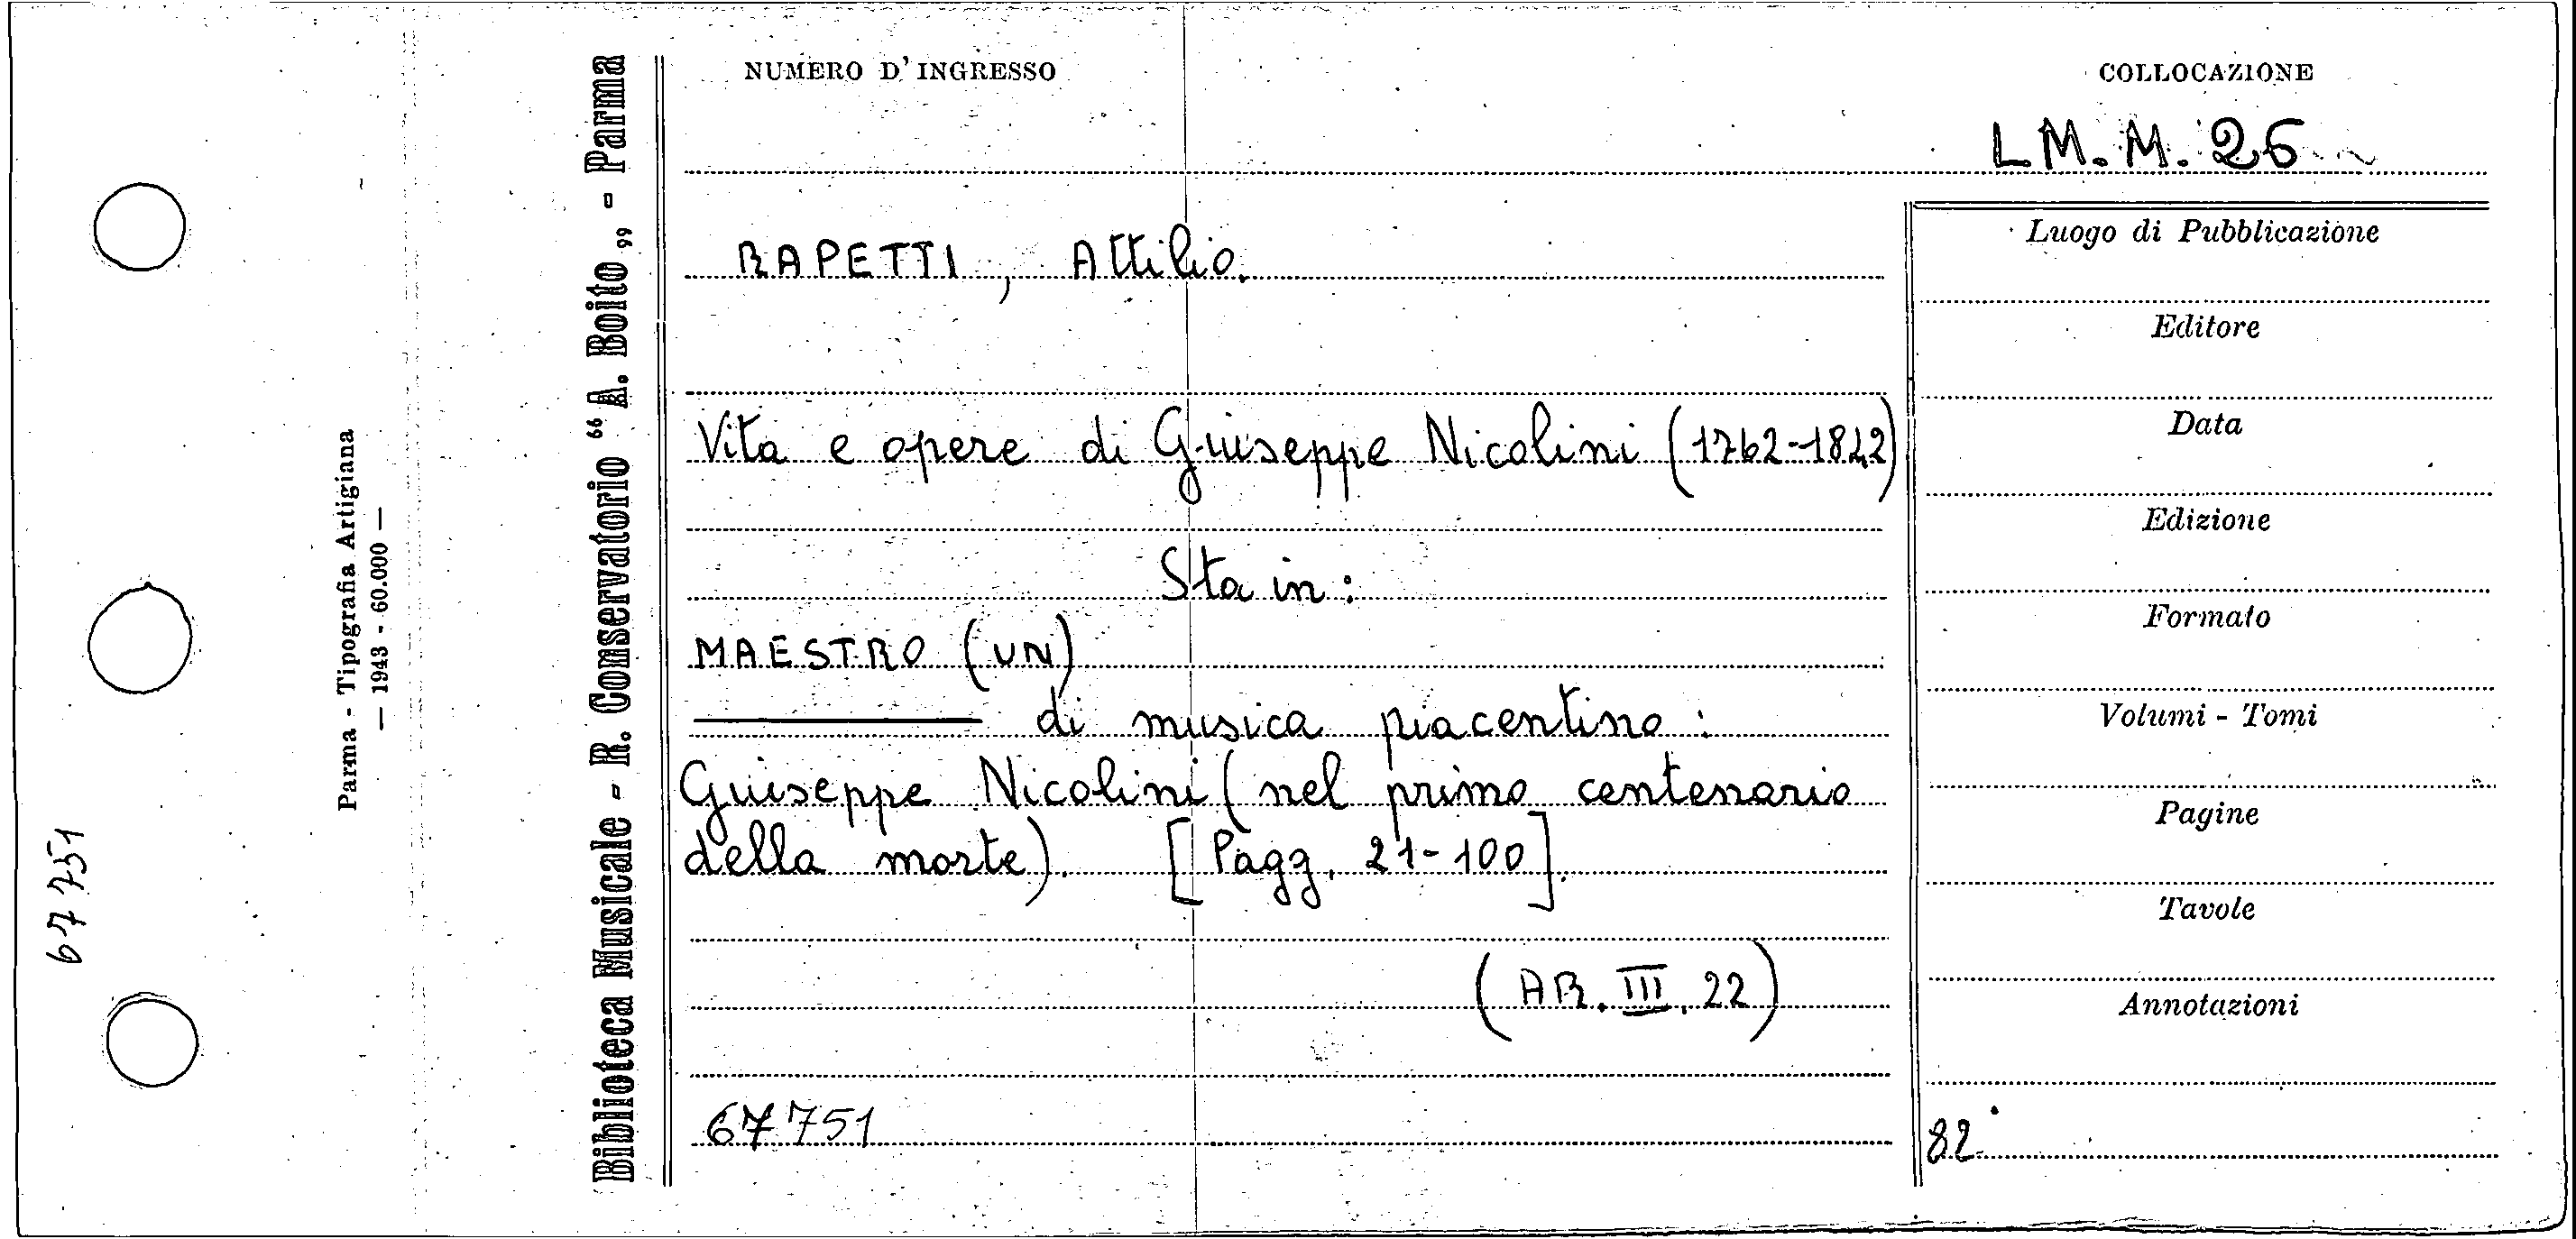 NUMERO D'INGRESSO
COLLOCAZIONE
LM.M. 26
RAPETTI, Attilio.
Vita e opere di Giuseppe Nicolini (1762-1842)
Sta in:
MAESTRO (UN)
di musica piacentino:
Giuseppe Nicolini (nel primo centenario
della morte). [Pagg. 21-100].
(AR. III. 22)
67751
Luogo di Pubblicazione
Editore
Data
Edizione
Formato
Volumi - Tomi
Pagine
Tavole
Annotazioni
82
Biblioteca Musicale - R. Conservatorio “A. Boito„ - Parma
Parma - Tipografia Artigiana
— 1943 - 60.000 —
67751